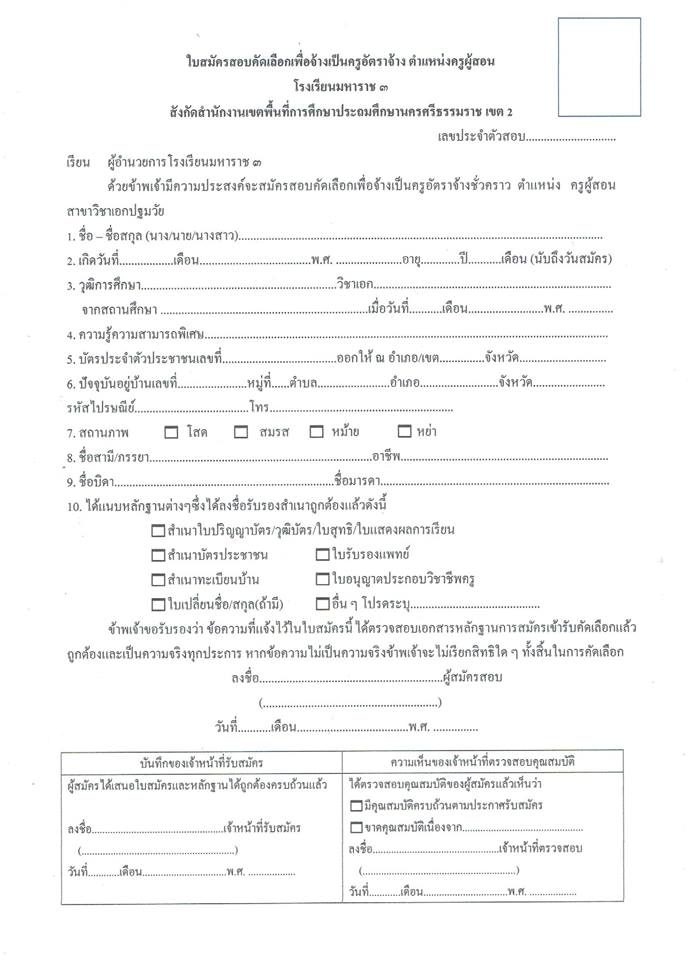 ใบสมัครสอบคัดเลือกเพื่อจ้างเป็นครูอัตราจ้าง ตำแหน่งครูผู้สอน
โรงเรียนมหาราช ๓
สังกัดสำนักงานเขตพื้นที่การศึกษาประถมศึกษานครศรีธรรมราช เขต 2
เลขประจำตัวสอบ..............................
เรียน ผู้อำนวยการโรงเรียนมหาราช ๓
ด้วยข้าพเจ้ามีความประสงค์จะสมัครสอบคัดเลือกเพื่อจ้างเป็นครูอัตราจ้างชั่วคราว ตำแหน่ง ครูผู้สอน
สาขาวิชาเอกปฐมวัย
1. ชื่อ – ชื่อสกุล (นาง/นาย/นางสาว)..............................
2. เกิดวันที่..................เดือน..............................พ.ศ. ......................อายุ.............ปี...........เดือน (นับถึงวันสมัคร)
3. วุฒิการศึกษา..............................วิชาเอก..............................
จากสถานศึกษา ..............................เมื่อวันที่...........เดือน.........................พ.ศ. ...............
4. ความรู้ความสามารถพิเศษ..............................
5. บัตรประจำตัวประชาชนเลขที่..............................ออกให้ ณ อำเภอ/เขต...............จังหวัด..............................
6. ปัจจุบันอยู่บ้านเลขที่.......................หมู่ที่......ตำบล........................อำเภอ..........................จังหวัด........................
รหัสไปรษณีย์..............................โทร..............................
7. สถานภาพ ☐ โสด ☐ สมรส ☐ หม้าย ☐ หย่า
8. ชื่อสามี/ภรรยา..............................อาชีพ..............................
9. ชื่อบิดา..............................ชื่อมารดา..............................
10. ได้แนบหลักฐานต่างๆซึ่งได้ลงชื่อรับรองสำเนาถูกต้องแล้วดังนี้
☐ สำเนาใบปริญญาบัตร/วุฒิบัตร/ใบสุทธิ/ใบแสดงผลการเรียน
☐ สำเนาบัตรประชาชน ☐ ใบรับรองแพทย์
☐ สำเนาทะเบียนบ้าน ☐ ใบอนุญาตประกอบวิชาชีพครู
☐ ใบเปลี่ยนชื่อ/สกุล(ถ้ามี) ☐ อื่น ๆ โปรดระบุ..............................
ข้าพเจ้าขอรับรองว่า ข้อความที่แจ้งไว้ในใบสมัครนี้ ได้ตรวจสอบเอกสารหลักฐานการสมัครเข้ารับคัดเลือกแล้ว
ถูกต้องและเป็นความจริงทุกประการ หากข้อความไม่เป็นความจริงข้าพเจ้าจะไม่เรียกสิทธิใด ๆ ทั้งสิ้นในการคัดเลือก
ลงชื่อ..............................ผู้สมัครสอบ
(..............................)
วันที่...........เดือน..............................พ.ศ. ...............
บันทึกของเจ้าหน้าที่รับสมัคร
ผู้สมัครได้เสนอใบสมัครและหลักฐานได้ถูกต้องครบถ้วนแล้ว
ลงชื่อ..............................เจ้าหน้าที่รับสมัคร
(..............................)
วันที่...........เดือน..........................พ.ศ. ...............
ความเห็นของเจ้าหน้าที่ตรวจสอบคุณสมบัติ
ได้ตรวจสอบคุณสมบัติของผู้สมัครแล้วเห็นว่า
☐ มีคุณสมบัติครบถ้วนตามประกาศรับสมัคร
☐ ขาดคุณสมบัติเนื่องจาก..............................
ลงชื่อ..............................เจ้าหน้าที่ตรวจสอบ
(..............................)
วันที่...........เดือน..........................พ.ศ. ...............